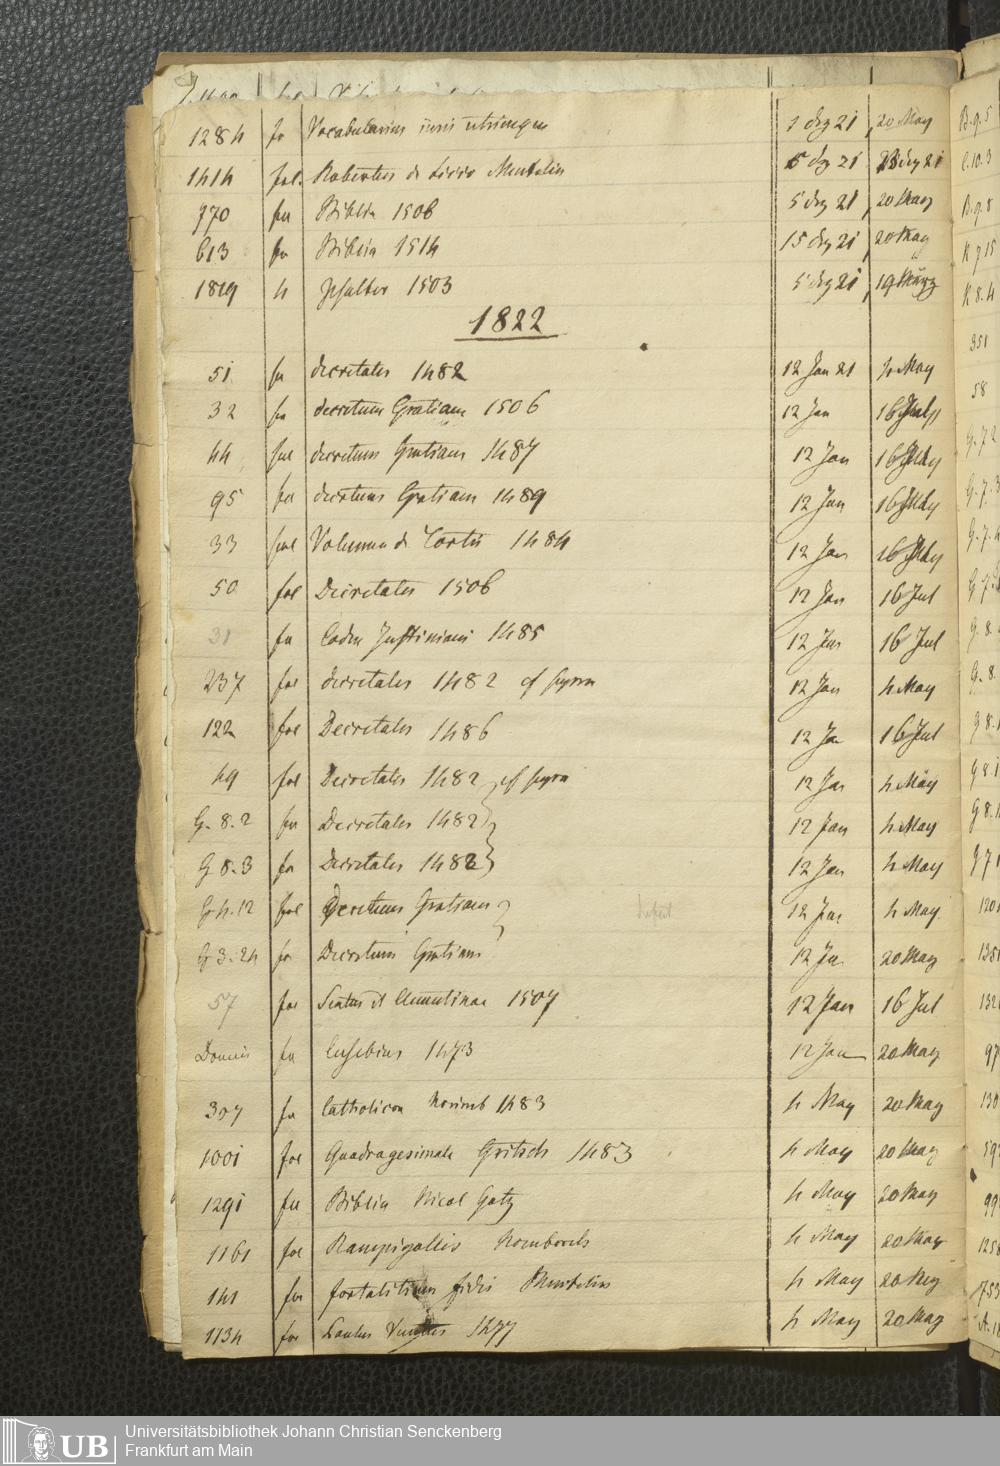 1284 fo Vocabularius iuris utriusque 1 dez 21 20 May
1414 fol. Robertus de Licio Mentelin 5 dez 21
970 fol Biblia 1506 5 dez 21 20 May
613 fo Biblia 1514 15 dez 21 20 May
1819 4 Psalter 1503 5 dez 21 19 März
1822
51 fol decretales 1482 12 Jan 21 4 May
32 fol decretum Gratiani 1506 12 Jan 16 July
44 fol decretum Gratiani 1487 12 Jan 16 July
95 fol decretum Gratiani 1489 12 Jan 16 July
33 fol Volumen de Tortis 1484 12 Jan 16 July
50 fol Decretales 1506 12 Jan 16 Jul
31 fol Codex Justiniani 1485 12 Jan 16 Jul
237 fol decretales 1482 cf supra 12 Jan 4 May
122 fol Decretales 1486 12 Ja 16 Jul
49 fol Decretales 1482 cf supra 12 Jan 4 May
G. 8. 2 fol Decretales 1482 12 Jan 4 May
G 8. 3 fo Decretales 1482 12 Jan 4 May
G 4. 12 fol Decretum Gratiani defect 12 Jan 4 May
G 3. 24 fo Decretum Gratiani 12 Ja 20 May
57 fol Sextus et Clementinae 1507 12 Jan 16 Jul
fol Eusebius 1473 12 Jan 20 May
307 fo Catholicon Norimb 1483 4 May 20 May
1001 fol Quadragesimale Gritsch 1483 4 May 20 May
1291 fol Biblia Nicol Gotz 4 May 20 May
1161 fol Rampigollis 4 May 20 May
141 fol fortalitium fidei Mentelin 4 May 20 May
1134 fol 1477 4 May 20 May
B. 9. 5
C. 10. 3
B. 9. 8
K 7 15
K 8. 4
351
58
UB Universitätsbibliothek Johann Christian Senckenberg
Frankfurt am Main